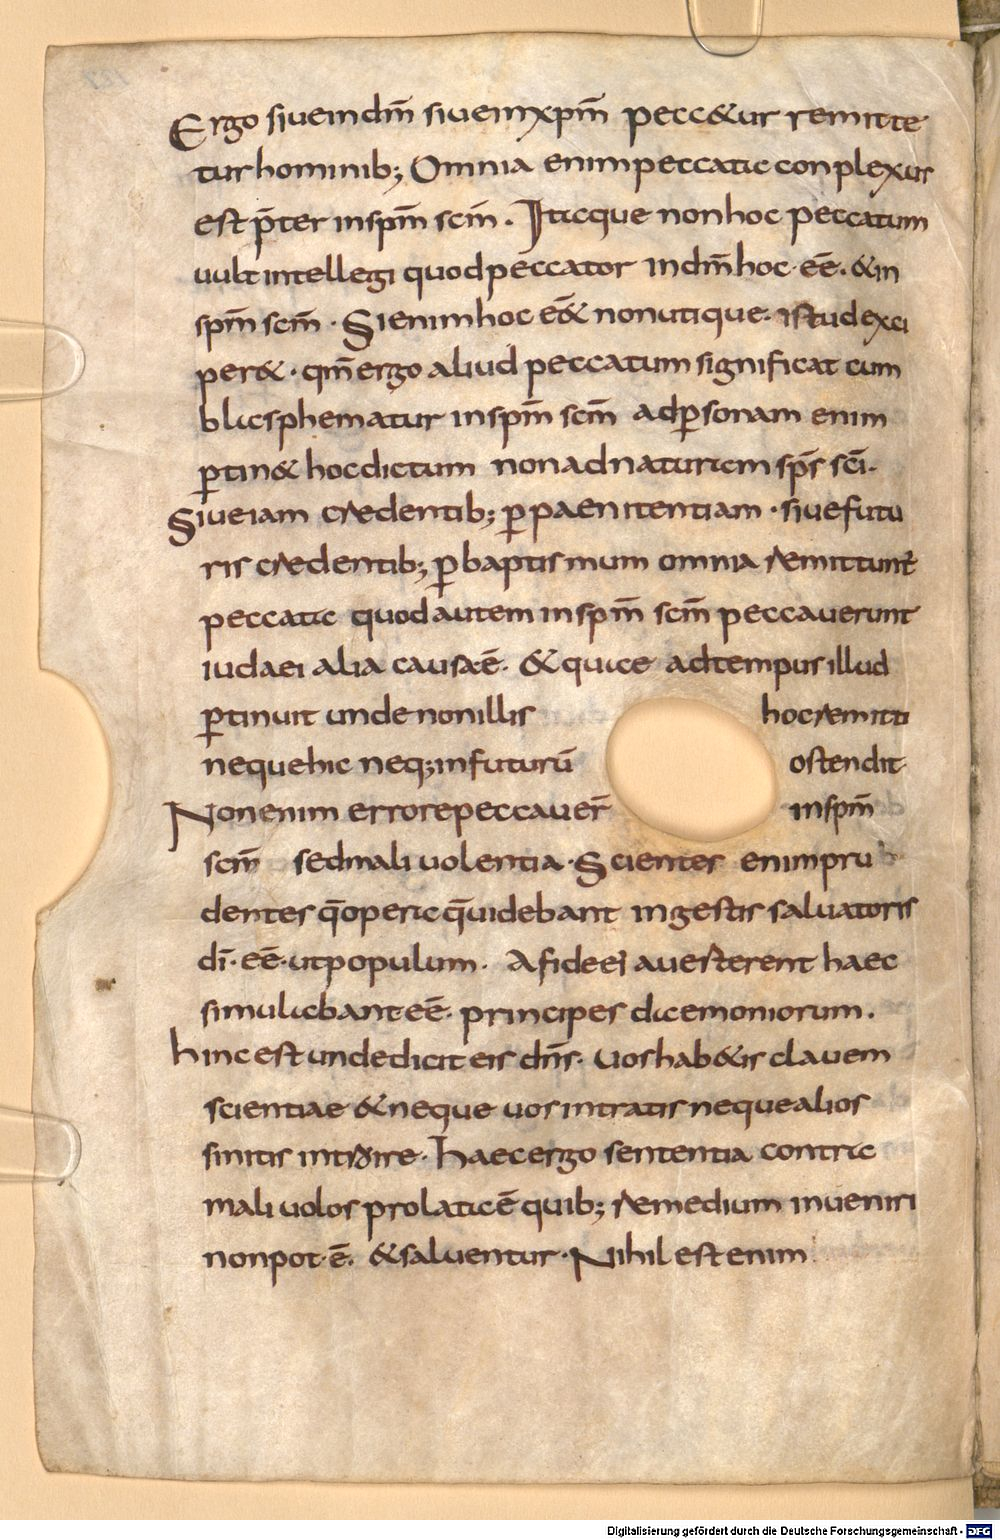 Ergo siue in dm̄ siue in xpm̄ pecc&ur remitte
tur hominib; Omnia enim peccata conplexus
est p̄ter in spm̄ scm̄. Itaque non hoc peccatum
uult intellegi quod peccator in dm̄ hoc · eē. & in
spm̄ scm̄ · Si enim hoc eē& non utique · istud exci
per& · qm̄ ergo aliud peccatum significat cum
blasphematur in spm̄ scm̄ ad ꝑsonam enim
ꝑtin& hoc dictum non ad naturam sp̄s sc̄i.
Siue iam credentib; ꝑ paenitentiam · siue futu
ris credentib; ꝑ baptismum omnia remittunt̄
peccata quod autem in spm̄ scm̄ peccauerunt
iudaei alia causa ē. & quia ad tempus illud
ꝑtinuit unde non illis hoc remitti
neque hic neq; in futurū ostendit
Non enim errore peccauer̄ in spm̄
scm̄ sed maliuolentia · Scienter enim pru
dentes q̄ opera q̄ uidebant in gestis saluatoris
dī · eē · ut populum · A fide eī auerterent haec
simulabant eē · principes daemoniorum.
hinc est unde dicit eis dn̄s · Uos hab&is clauem
scientiae & neque uos intratis neque alios
sinitis introire · haec ergo sententia contra
maliuolos prolata ē quib; remedium inueniri
non pot · ē. & saluentur · Nihil est enim
Digitalisierung gefördert durch die Deutsche Forschungsgemeinschaft - DFG